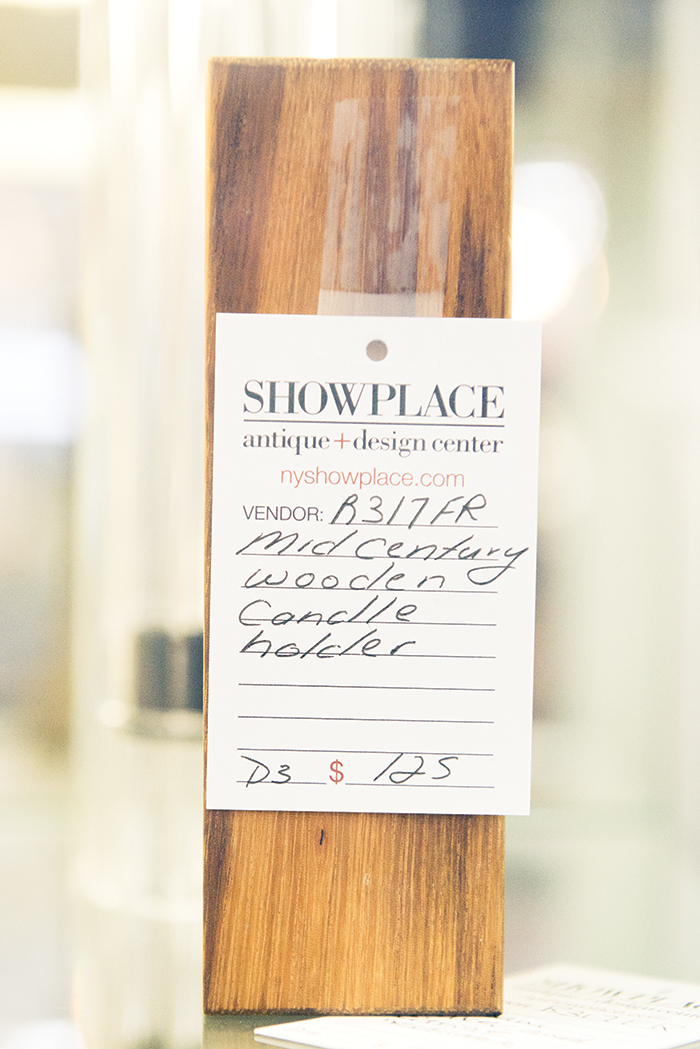 SHOWPLACE
antique+design center
nyshowplace.com
VENDOR: R317FR
Mid Century
wooden
Candle
holder
D3 $ 125
SHOWPLACE